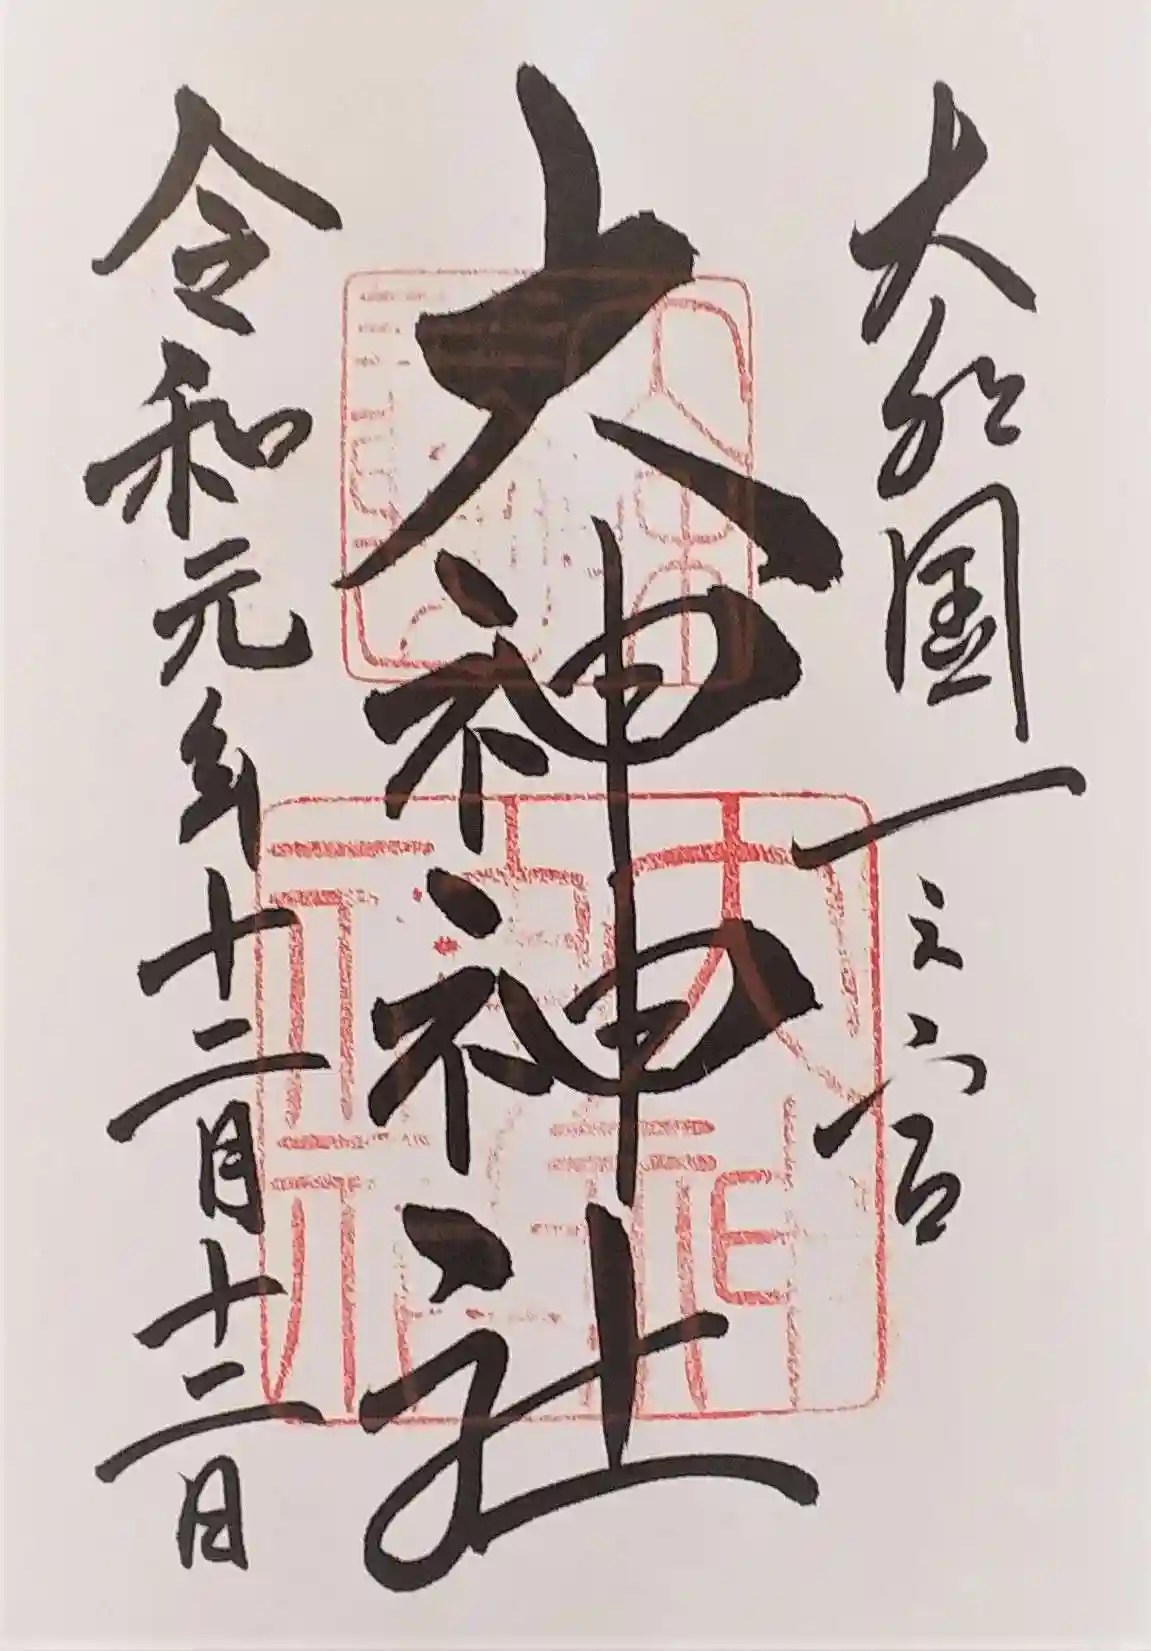 大和国一之宮
大神神社
令和元年十二月十二日